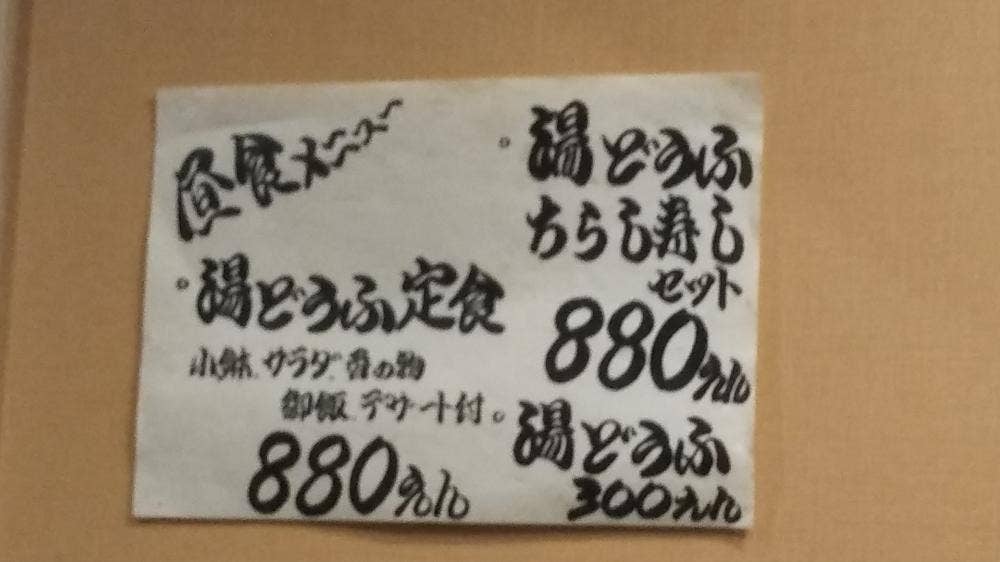 昼食メニュー
。湯どうふ定食
小鉢、サラダ、香の物
御飯、デザート付。
880えん
。湯どうふ
ちらし寿し
セット
880えん
湯どうふ
300えん